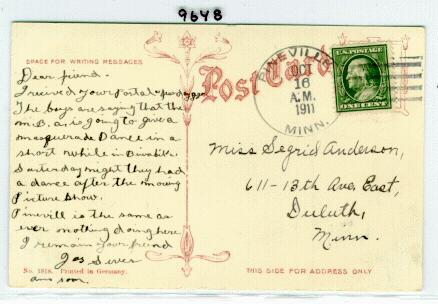 9648
SPACE FOR WRITING MESSAGES
Post Card
Dear friend.
I recived your Postal
The boys are saying that the
M.B.A. is going to give a
masquerade Dance in a
short while in Biwabik.
Saturday night they had
a dance after the moving
Picture show.
Pinevill is the same as
ever nothing doing here.
I remain your friend
Jos Siver
ans soon.
No. 1818. Printed in Germany.
PINEVILLE
OCT
16
A.M.
1911
MINN.
U.S. POSTAGE
ONE CENT
Miss Segrid Anderson,
611-13th Ave, East,
Duluth,
Minn.
THIS SIDE FOR ADDRESS ONLY